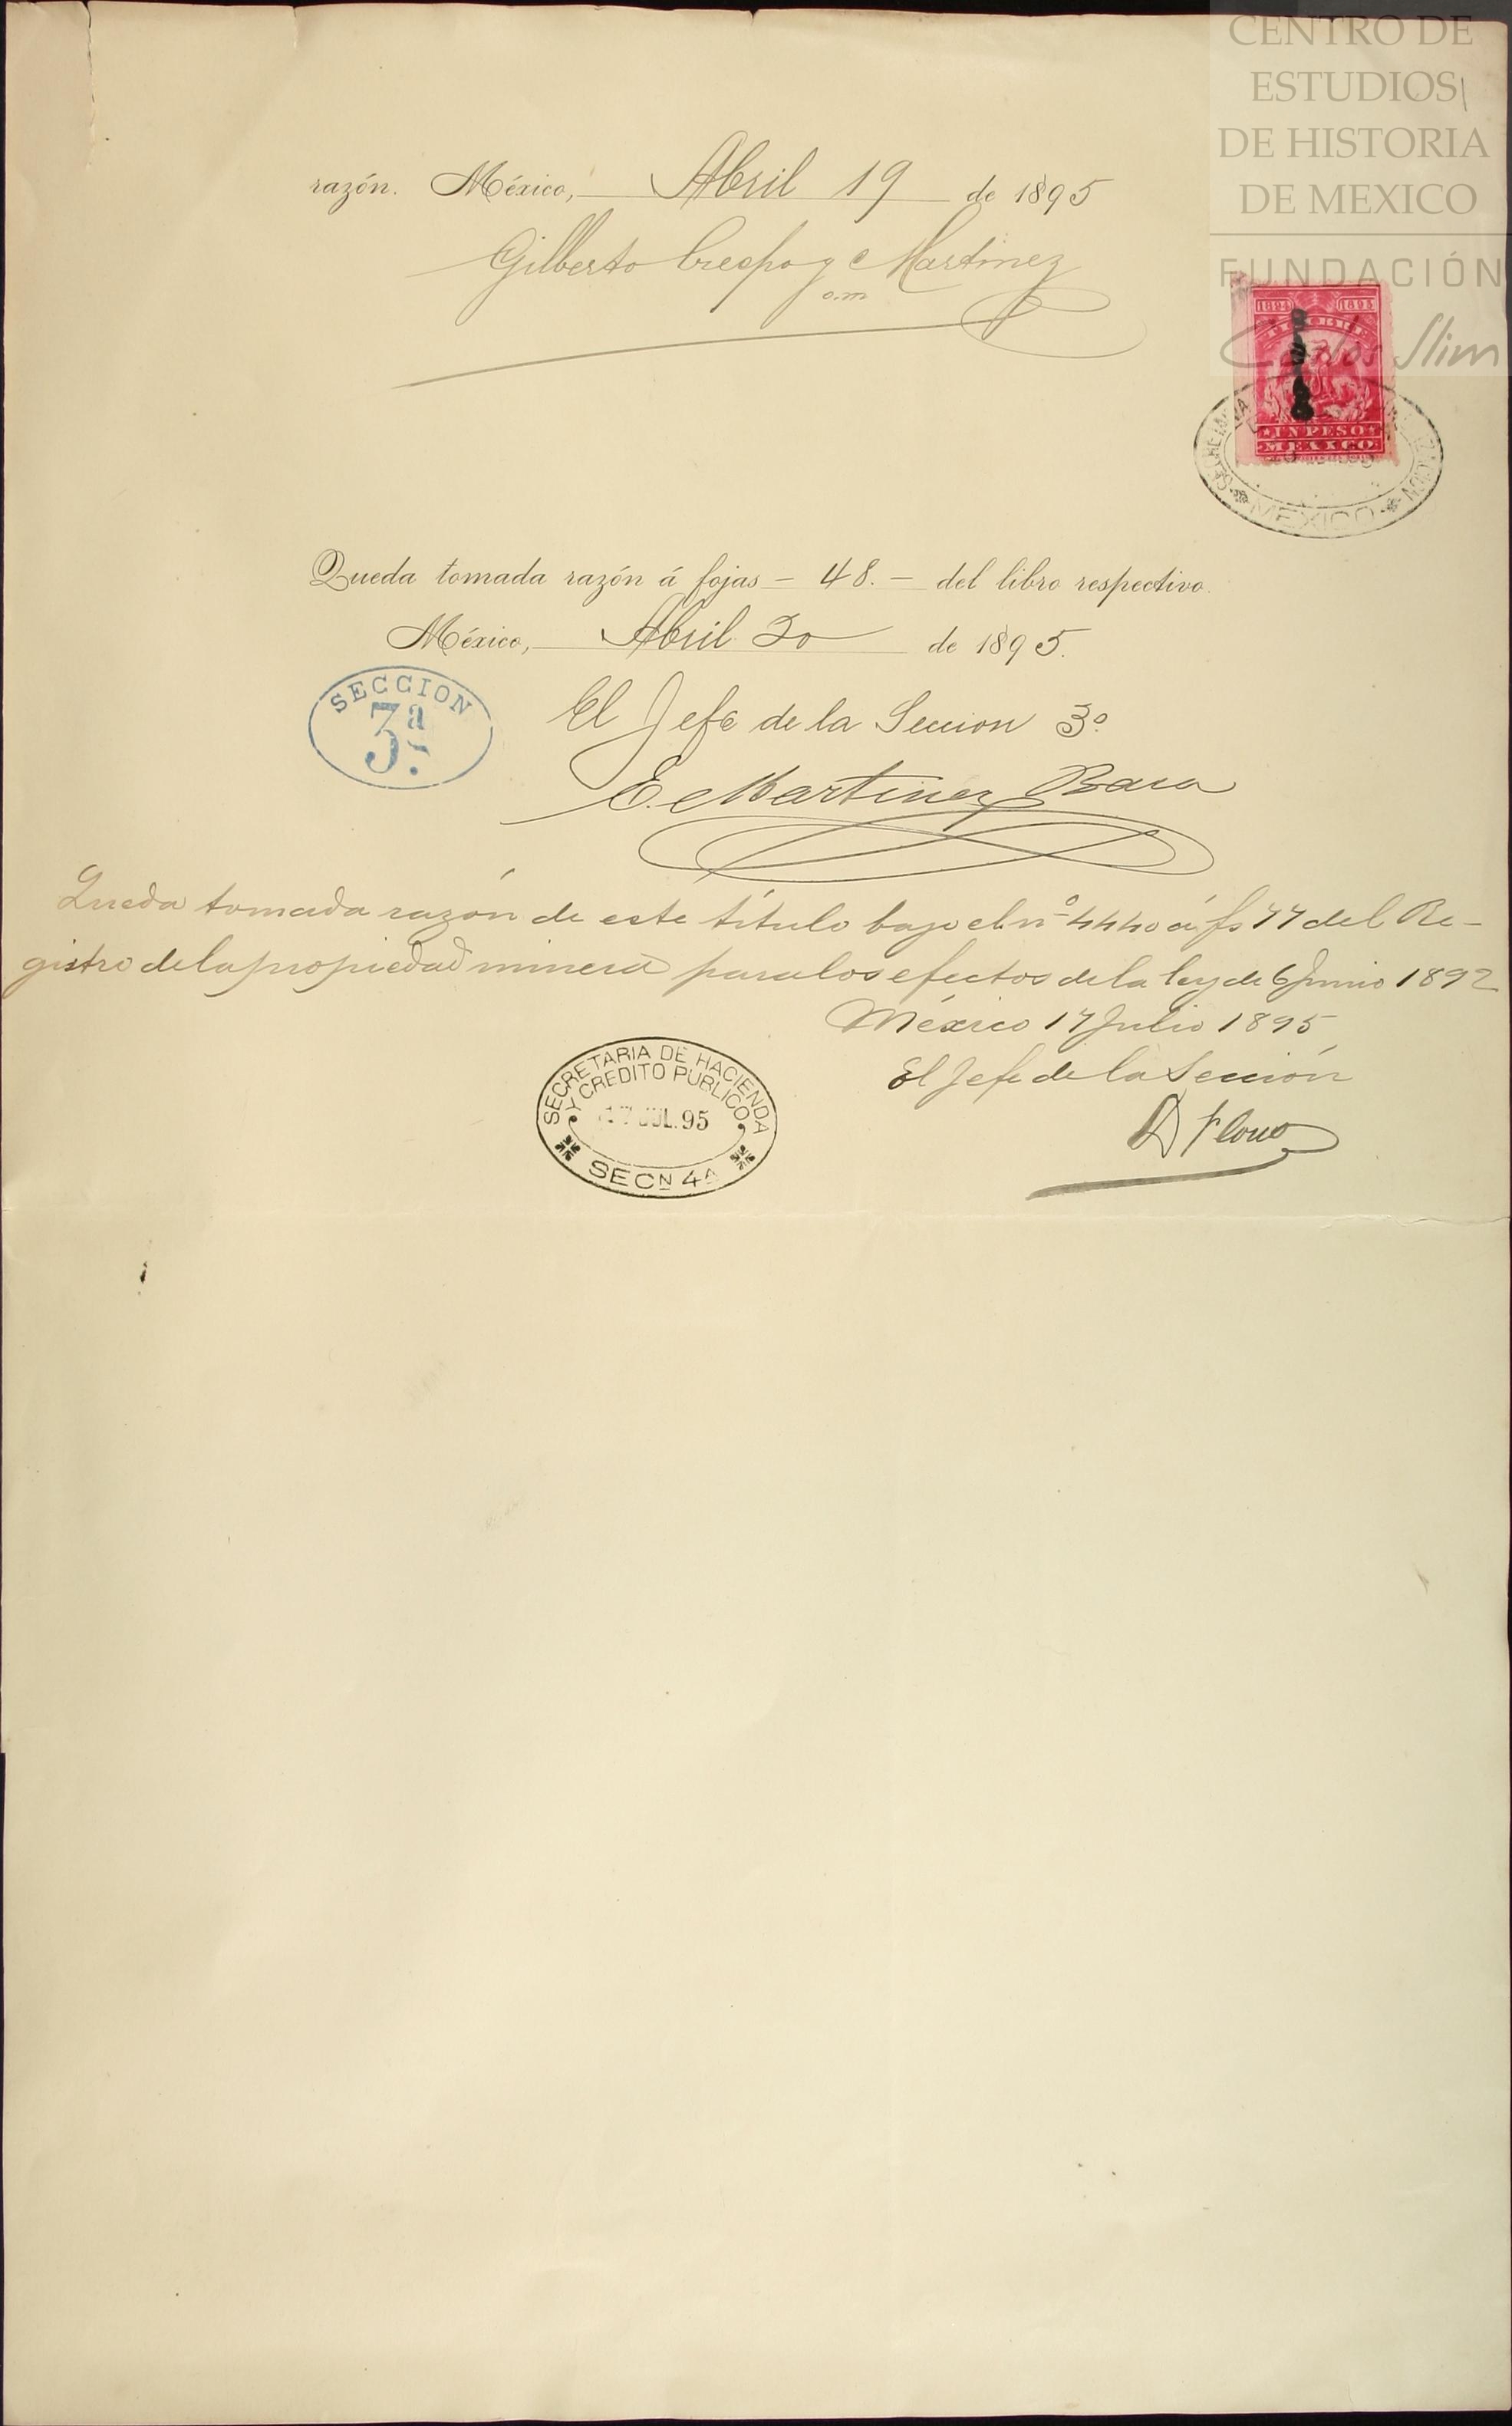 CENTRO DE
ESTUDIOS
DE HISTORIA
DE MEXICO
FUNDACIÓN
Carlos Slim
razón. México, Abril 19 de 1895
Gilberto Crespo y Martinez
o.m
1894 1895
UN PESO
MEXICO
MEXICO
Queda tomada razón á fojas - 48. - del libro respectivo.
México, Abril 20 de 1895.
SECCION
3ª
El Jefe de la Seccion 3ª
E. Martinez Baca
Queda tomada razón de este título bajo el nº 4440 á fs 77 del Re-
gistro de la propiedad minera para los efectos de la ley de 6 Junio 1892
México 17 Julio 1895
El Jefe de la Sección
SECRETARIA DE HACIENDA
Y CREDITO PUBLICO
17 JUL. 95
SECN 4A